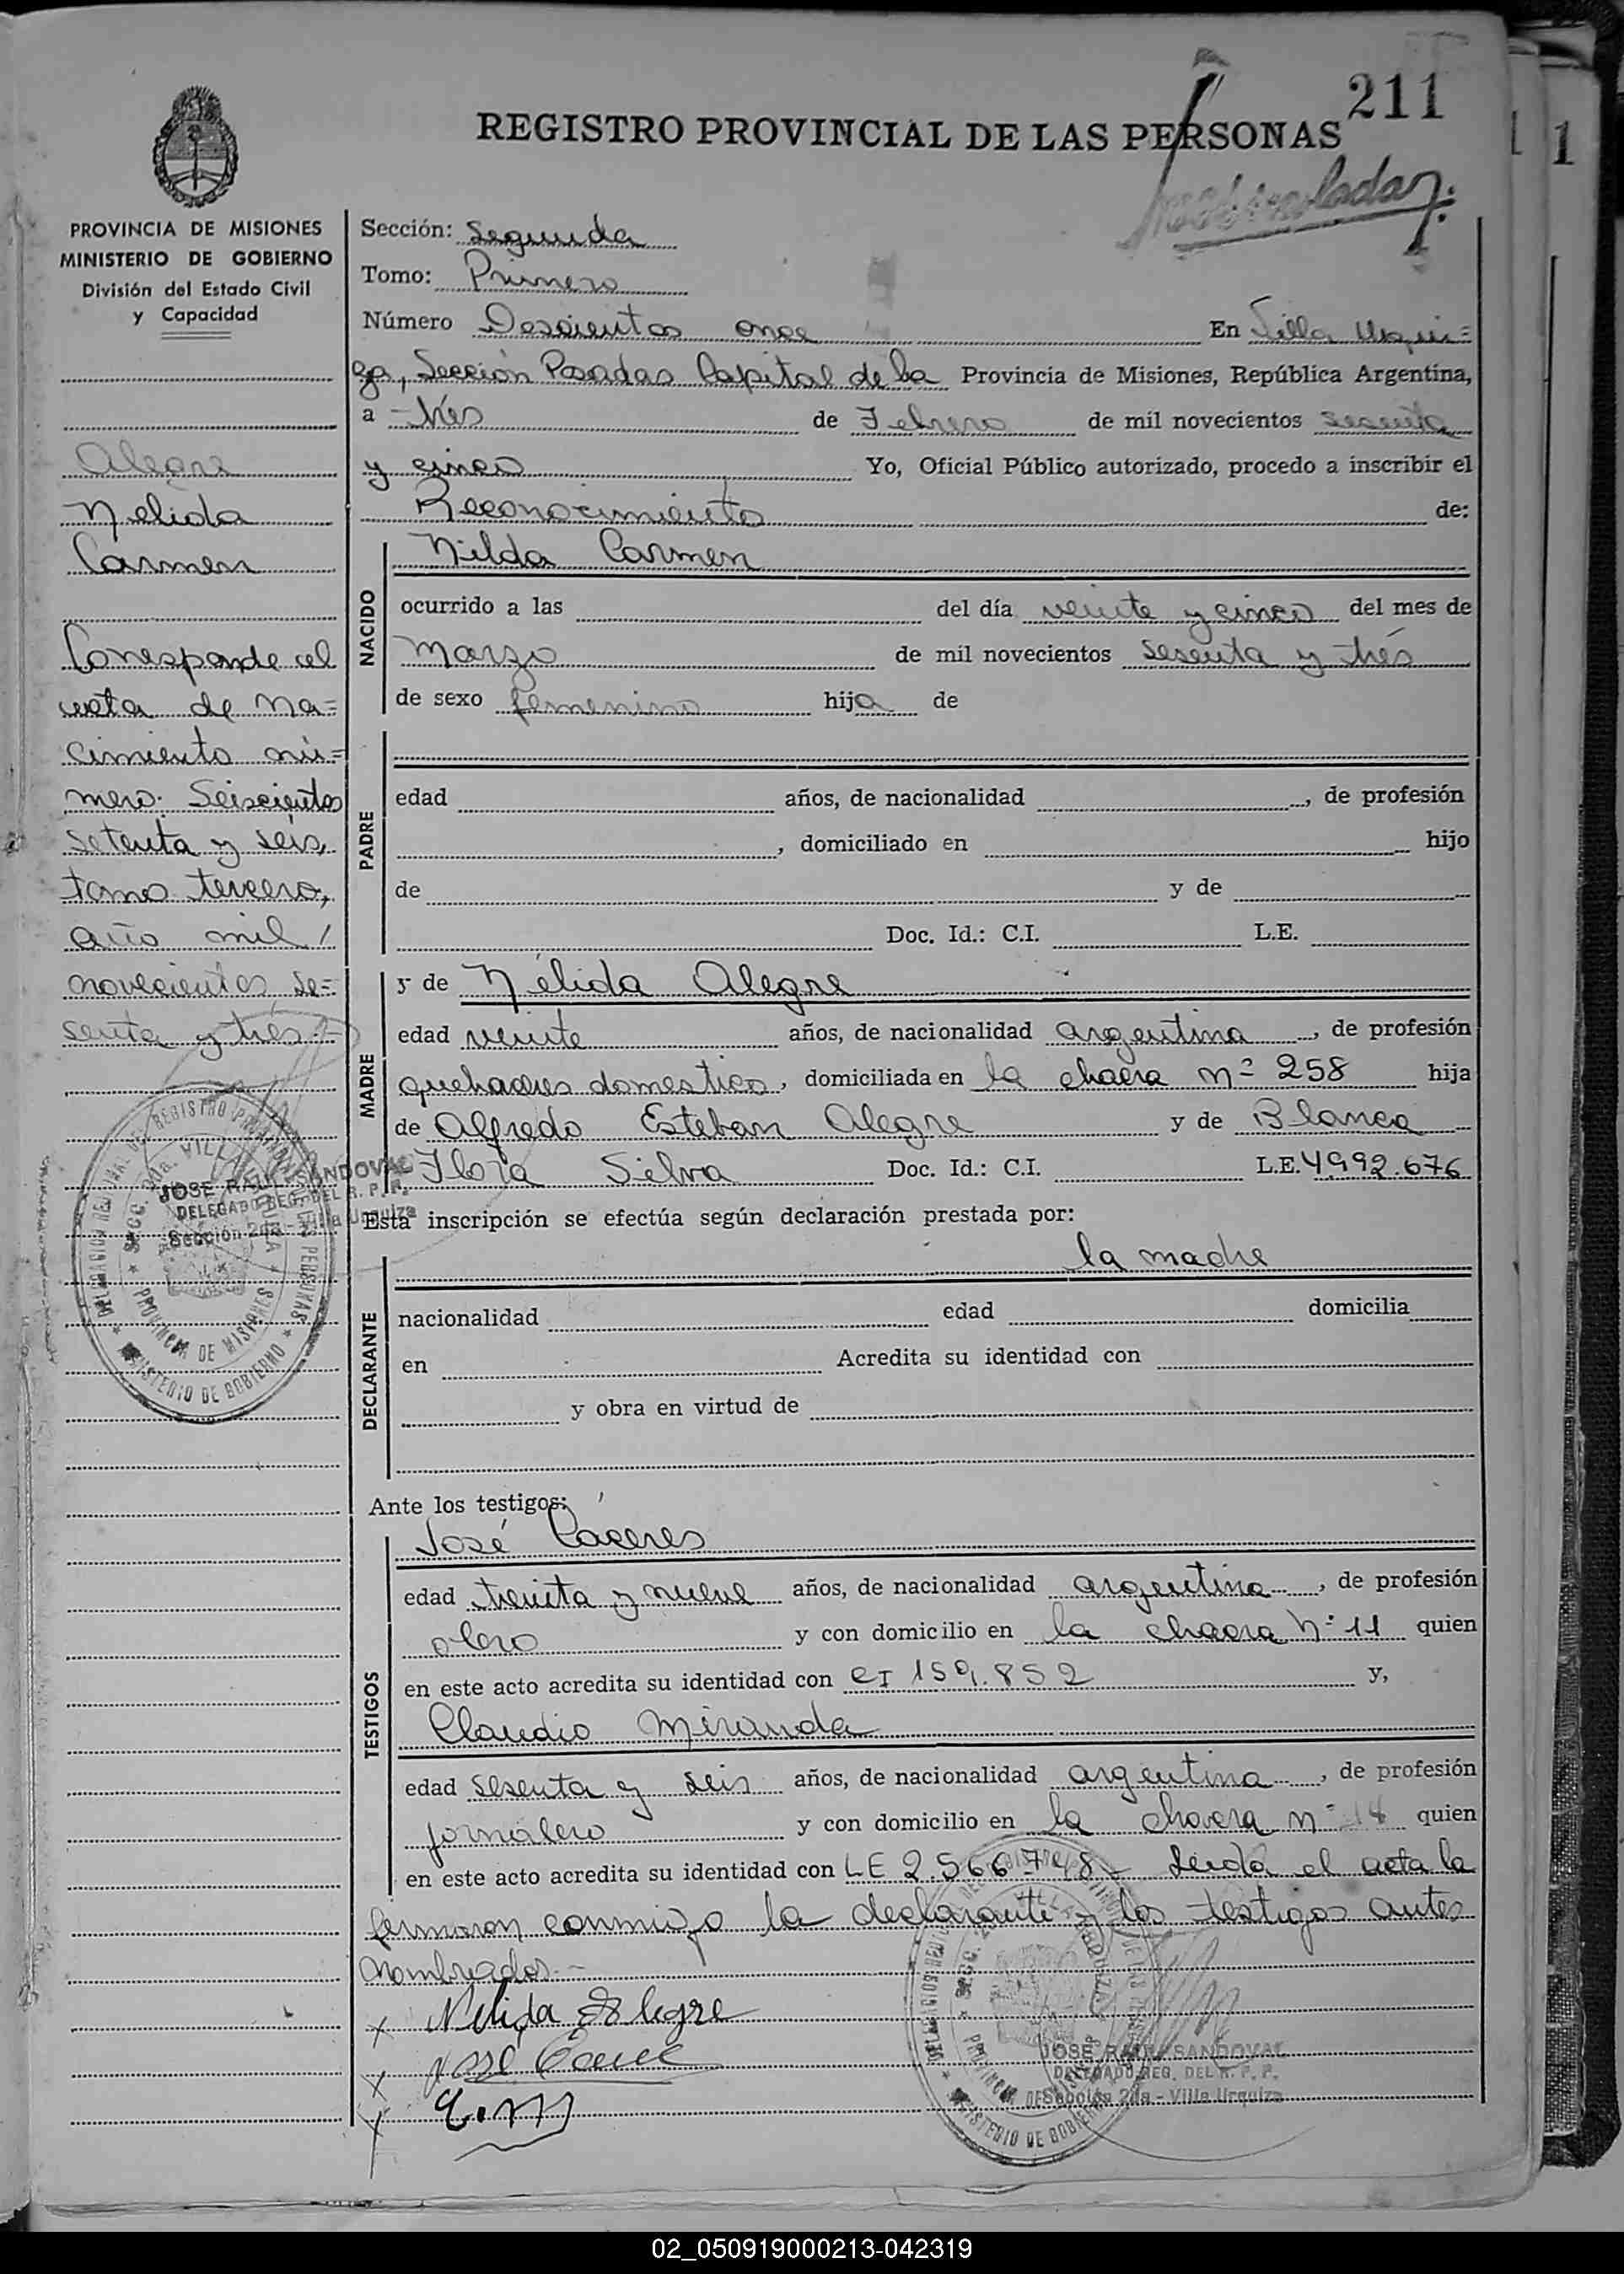 211
REGISTRO PROVINCIAL DE LAS PERSONAS
PROVINCIA DE MISIONES
MINISTERIO DE GOBIERNO
División del Estado Civil
y Capacidad
Alegre
Nelida
Carmen
Corresponde al
acta de na=
cimiento nú=
mero: Seiscientos
setenta y seis,
tomo tercero,
año mil
novecientos se=
senta y trés.-
JOSE RAUL SANDOVAL
DELEGADO REG. DEL R. P. P.
Sección 2da - Villa Urquiza
DELEGACION REG. DEL REGISTRO PROVINCIAL DE LAS PERSONAS
SECC. 2da. VILLA URQUIZA
PROVINCIA DE MISIONES
MINISTERIO DE GOBIERNO
Sección: Segunda
Tomo: Primero
Número Doscientos once En Villa Urqui=
za, Sección Posadas Capital de la Provincia de Misiones, República Argentina,
a - trés de Febrero de mil novecientos sesenta
y cinco Yo, Oficial Público autorizado, procedo a inscribir el
Reconocimiento de:
NACIDO
Nilda Carmen
ocurrido a las del día veinte y cinco del mes de
Marzo de mil novecientos sesenta y trés
de sexo femenino hija de
PADRE
edad años, de nacionalidad , de profesión
, domiciliado en hijo
de y de
Doc. Id.: C.I. L.E.
MADRE
y de Nélida Alegre
edad veinte años, de nacionalidad argentina , de profesión
quehaceres domestico, domiciliada en la chacra Nº 258 hija
de Alfredo Esteban Alegre y de Blanca
Flora Silva Doc. Id.: C.I. L.E. 4.992.676
Esta inscripción se efectúa según declaración prestada por:
la madre
DECLARANTE
nacionalidad edad domicilia
en Acredita su identidad con
y obra en virtud de
Ante los testigos:
TESTIGOS
José Caceres
edad treinta y nueve años, de nacionalidad argentina , de profesión
obrero y con domicilio en la chacra Nº 11 quien
en este acto acredita su identidad con CI 159.852 y,
Claudio Miranda
edad sesenta y seis años, de nacionalidad argentina , de profesión
jornalero y con domicilio en la chacra Nº 14 quien
en este acto acredita su identidad con LE 2.566.748- Leida el acta la
firmaron conmigo la declarante y los testigos antes
nombrados.-
x Nelida Alegre
x José
x C.M
JOSE RAUL SANDOVAL
DELEGADO REG. DEL R. P. P.
Sección 2da - Villa Urquiza
02_050919000213-042319